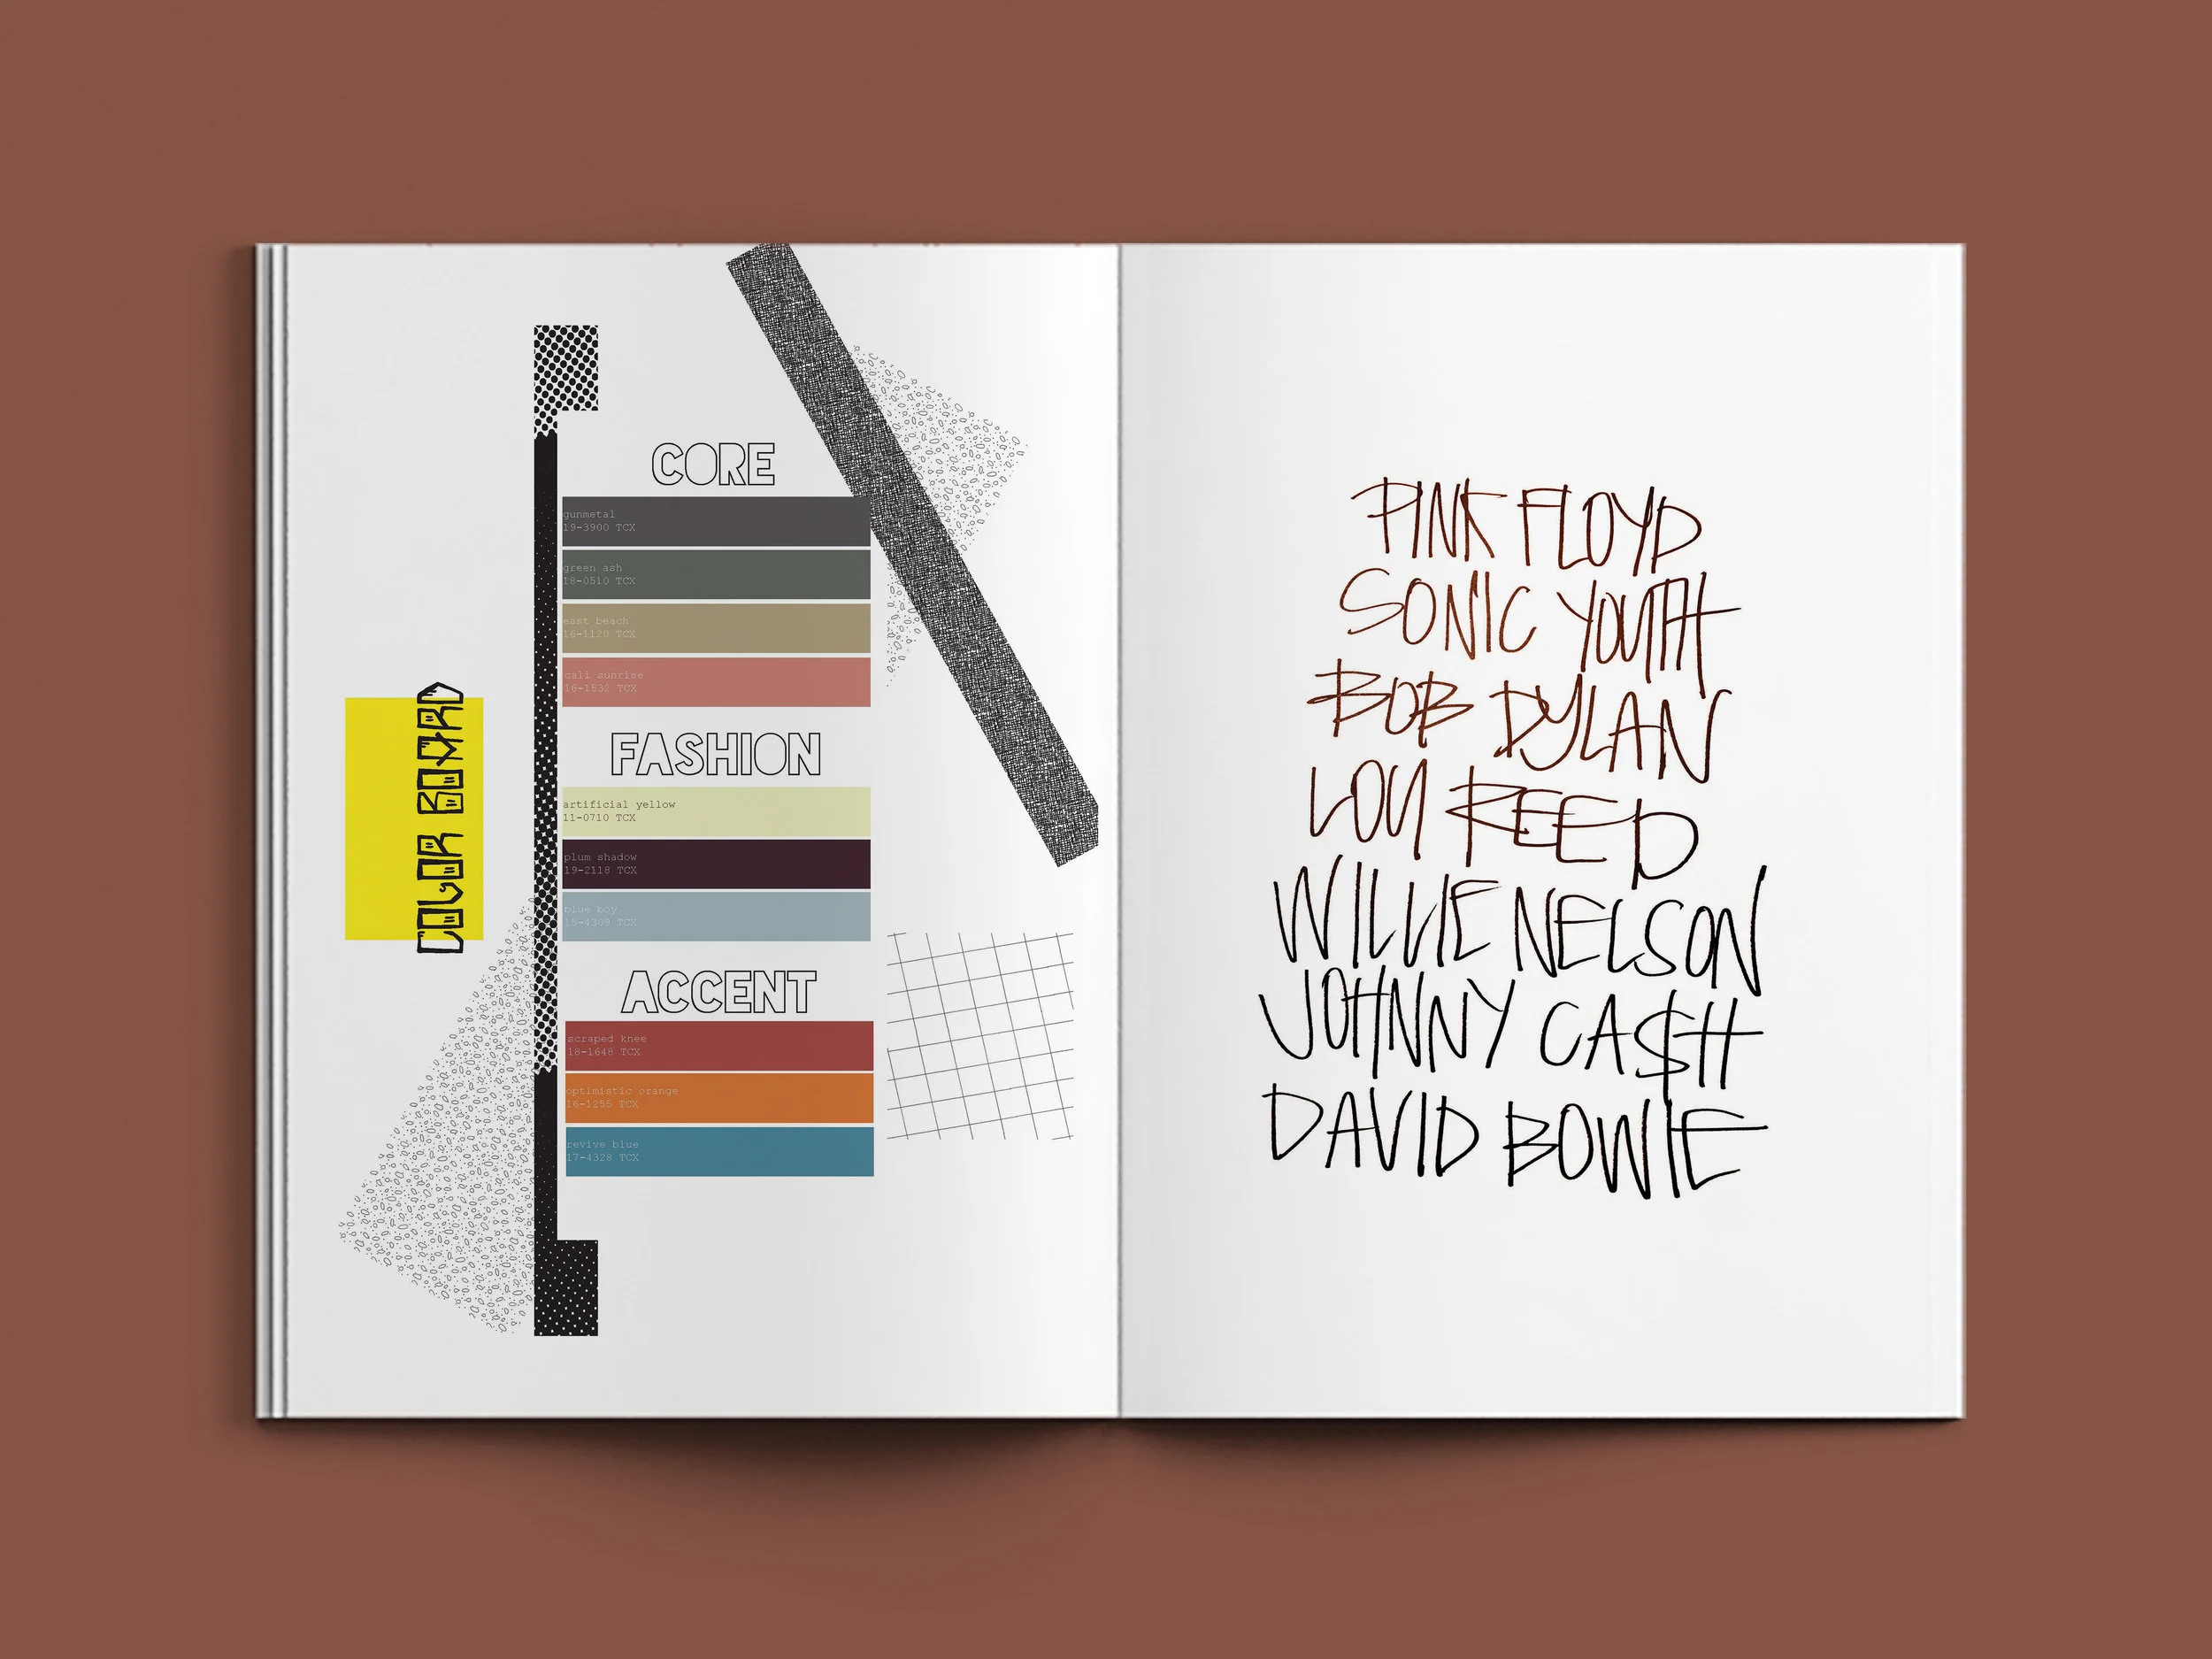 COLOR BOARD
CORE
gunmetal
19-3900 TCX
green ash
18-0510 TCX
east beach
16-1120 TCX
cali sunrise
16-1532 TCX
FASHION
artificial yellow
11-0710 TCX
plum shadow
19-2118 TCX
blue boy
15-4309 TCX
ACCENT
scraped knee
18-1648 TCX
optimistic orange
16-1255 TCX
revive blue
17-4328 TCX
PINK FLOYD
SONIC YOUTH
BOB DYLAN
LOU REED
WILLIE NELSON
JOHNNY CA$H
DAVID BOWIE